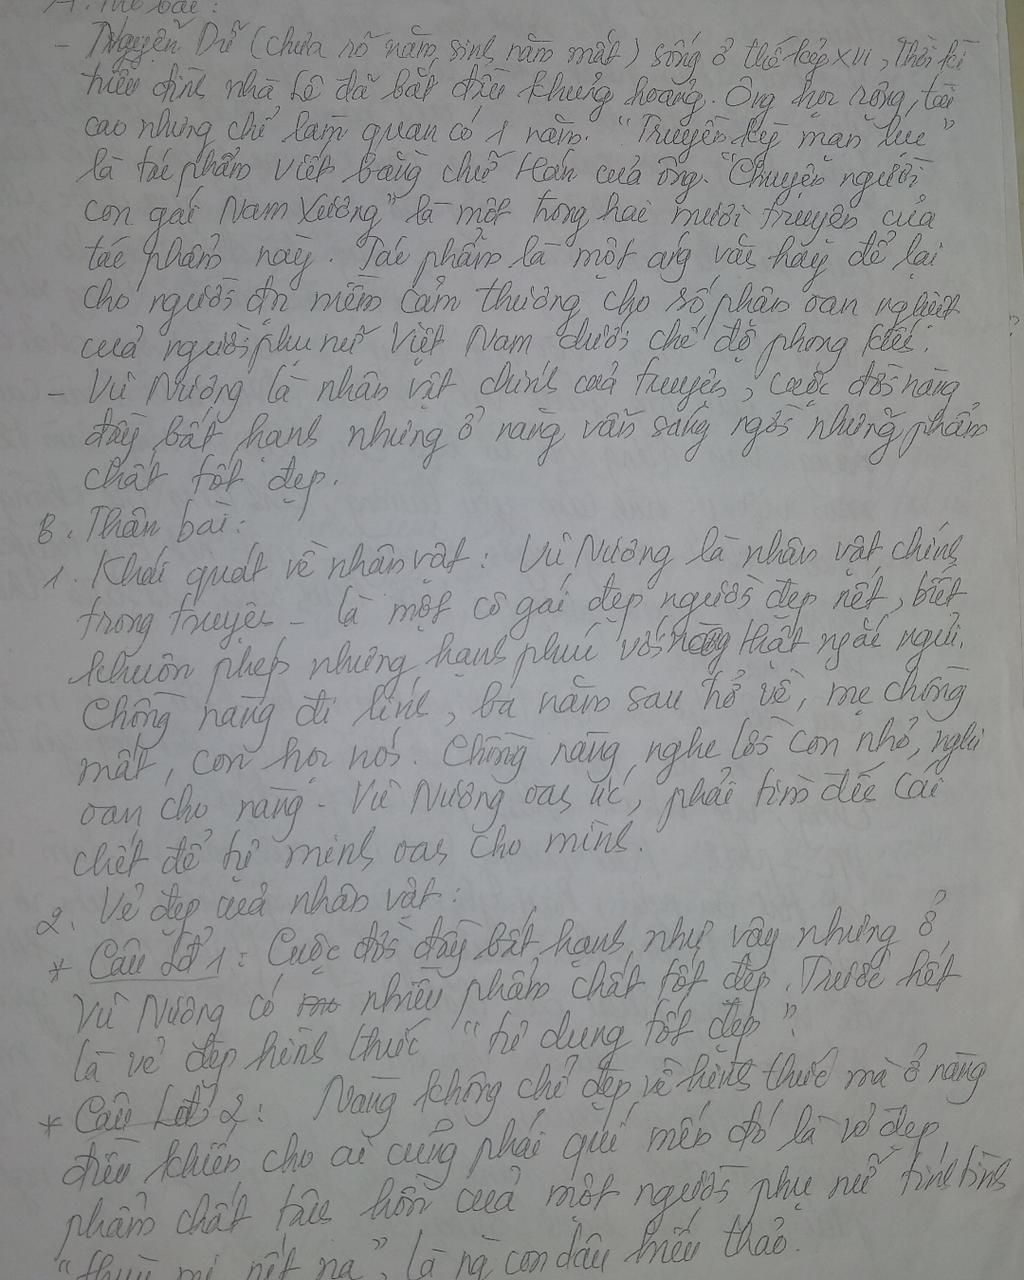 A. Mở bài:
- Nguyễn Dữ (chưa rõ năm sinh, năm mất) sống ở thế kỷ XVI, thời kì
triều đình nhà Lê đã bắt đầu khủng hoảng. Ông học rộng, tài
cao nhưng chỉ làm quan có 1 năm. "Truyền kỳ mạn lục"
là tác phẩm viết bằng chữ Hán của ông. "Chuyện người
con gái Nam Xương" là một trong hai mươi truyện của
tác phẩm này. Tác phẩm là một áng văn hay để lại
cho người đọc niềm cảm thương cho số phận oan nghiệt
của người phụ nữ Việt Nam dưới chế độ phong kiến.
- Vũ Nương là nhân vật chính của truyện, cuộc đời nàng
đầy bất hạnh nhưng ở nàng vẫn sáng ngời những phẩm
chất tốt đẹp.
B. Thân bài:
1. Khái quát về nhân vật: Vũ Nương là nhân vật chính
trong truyện - là một cô gái đẹp người đẹp nết, biết
khuôn phép nhưng hạnh phúc với nàng thật ngắn ngủi.
Chồng nàng đi lính, ba năm sau trở về, mẹ chồng
mất, con học nói. Chồng nàng nghe lời con nhỏ, nghi
oan cho nàng. Vũ Nương oan ức, phải tìm đến cái
chết để tự minh oan cho mình.
2. Vẻ đẹp của nhân vật:
* Câu LĐ 1: Cuộc đời đầy bất hạnh như vậy nhưng ở
Vũ Nương có nhiều phẩm chất tốt đẹp. Trước hết
là vẻ đẹp hình thức "tư dung tốt đẹp".
* Câu LĐ 2: Nàng không chỉ đẹp về hình thức mà ở nàng
điều khiến cho ai cũng phải quí mến đó là vẻ đẹp
phẩm chất tâm hồn của một người phụ nữ tính tình
"thuỳ mị nết na", là ng con dâu hiếu thảo.